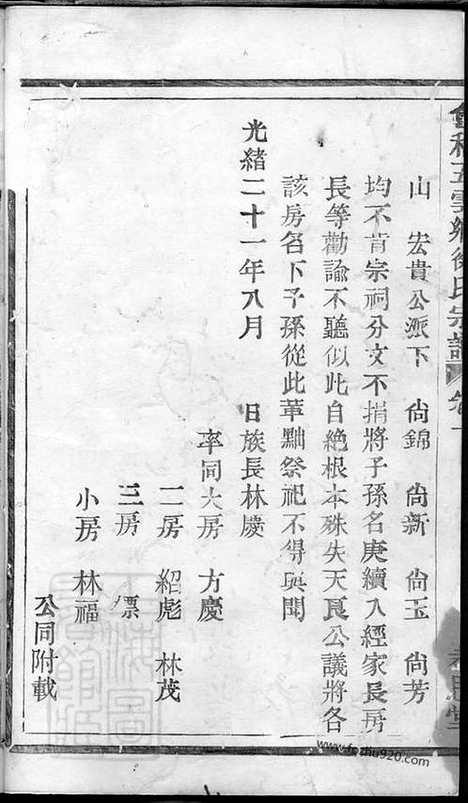 五雲鄉徐氏宗譜
山　宏貴公派下　尙錦　尙新　尙玉　尙芳
均不肯宗祠分文不捐將子孫名庚續入經家長房
長等勸諭不聽似此自絕根本殊失天良公議將各
該房名下子孫從此革黜祭祀不得與聞
光緒二十一年八月　日族長林慶
率同大房　方慶
二房　紹彪　林茂
三房　標
小房　林福
公同附載
www.fozhu920.com